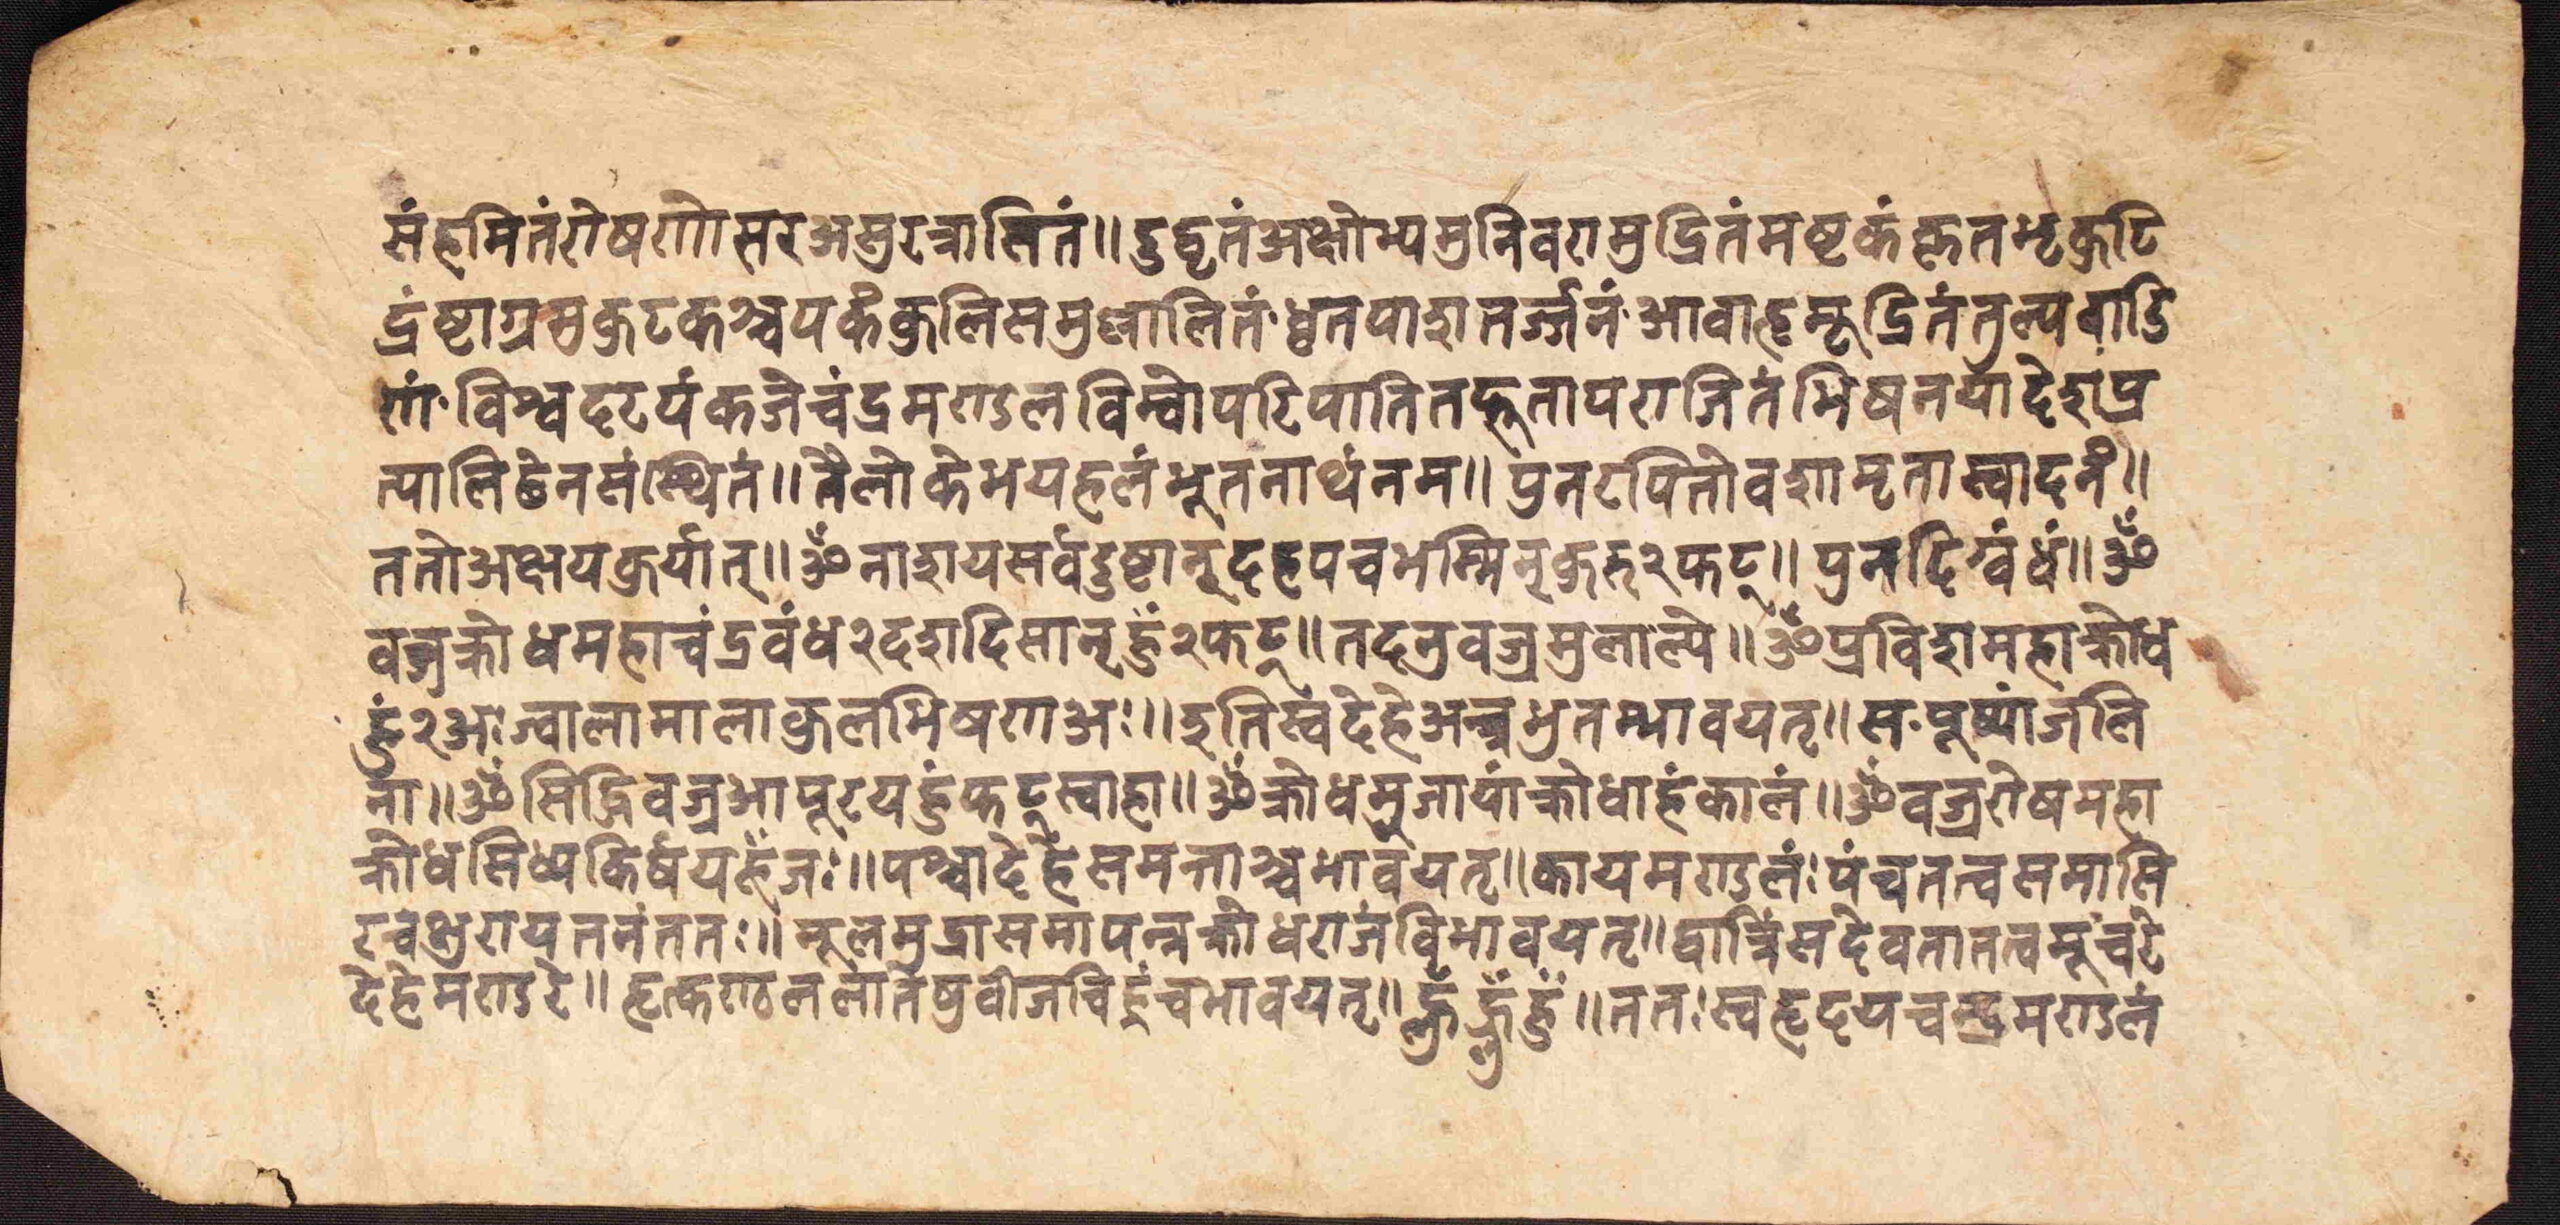 संहमितंरोषणोसर२असुरत्रासितं॥दुद्धृतंअक्षोभ्यमुनिवरामुद्रितंमष्टकंकृतभृकुटि
द्रंष्टाग्रमुकुटकश्चपकंकुलिसमुणालितंधृतपाशतर्ज्जनंआवाहृमूद्रितंतुल्यवाडि
णंविश्वदरपंकजेचंद्रमण्डलविम्वोपरिपातितद्भूतापराजितंभिषनयादेशंप्र
त्यालिढेनसंस्थितं॥त्रैलोकेभयहलंभूतनाथंनम॥पुनरपितोवशामृतास्वादनं॥
ततोअक्षयकुर्यात्॥ॐनाशयसर्वदुष्टान्दहपचभस्मिन्कुरु२फट्॥पुनदिग्वंधं॥ॐ
वज्रक्रोधमहाचंद्रवंध२दशदिसान्हुँ२फट्॥तदनुवज्रमुलाल्पे॥ॐप्रविशमहाक्रोध
हुं२अःज्वालामालाकुलभिषणअः॥इतिस्वदेहेअन्त्रभुतम्भावयत्॥सपूष्पांजलि
ना॥ॐसिद्धिवज्रआपूरयहुंफट्स्वाहा॥ॐक्रोधमुजायांक्रोधाहंकालं॥ॐवज्ररोषमहा
क्रोधसिध्यकिर्षयहूँजः॥पश्चादेहेसमन्ताश्चभावयत्॥कायमण्डलंःपंचतत्वसमासि
रवंभुरायतनंततः॥मूलमुद्रासमापन्नक्रोधराजंविभावयत्॥द्वात्रिंसदेवतातत्वमूंचरे
देहेमण्डरे॥हृत्कण्ठललातेषुवीजचिहुंचभावयत्॥ह्रुंहुँहुँ॥ततःस्वहृदयचन्द्रमण्डलं